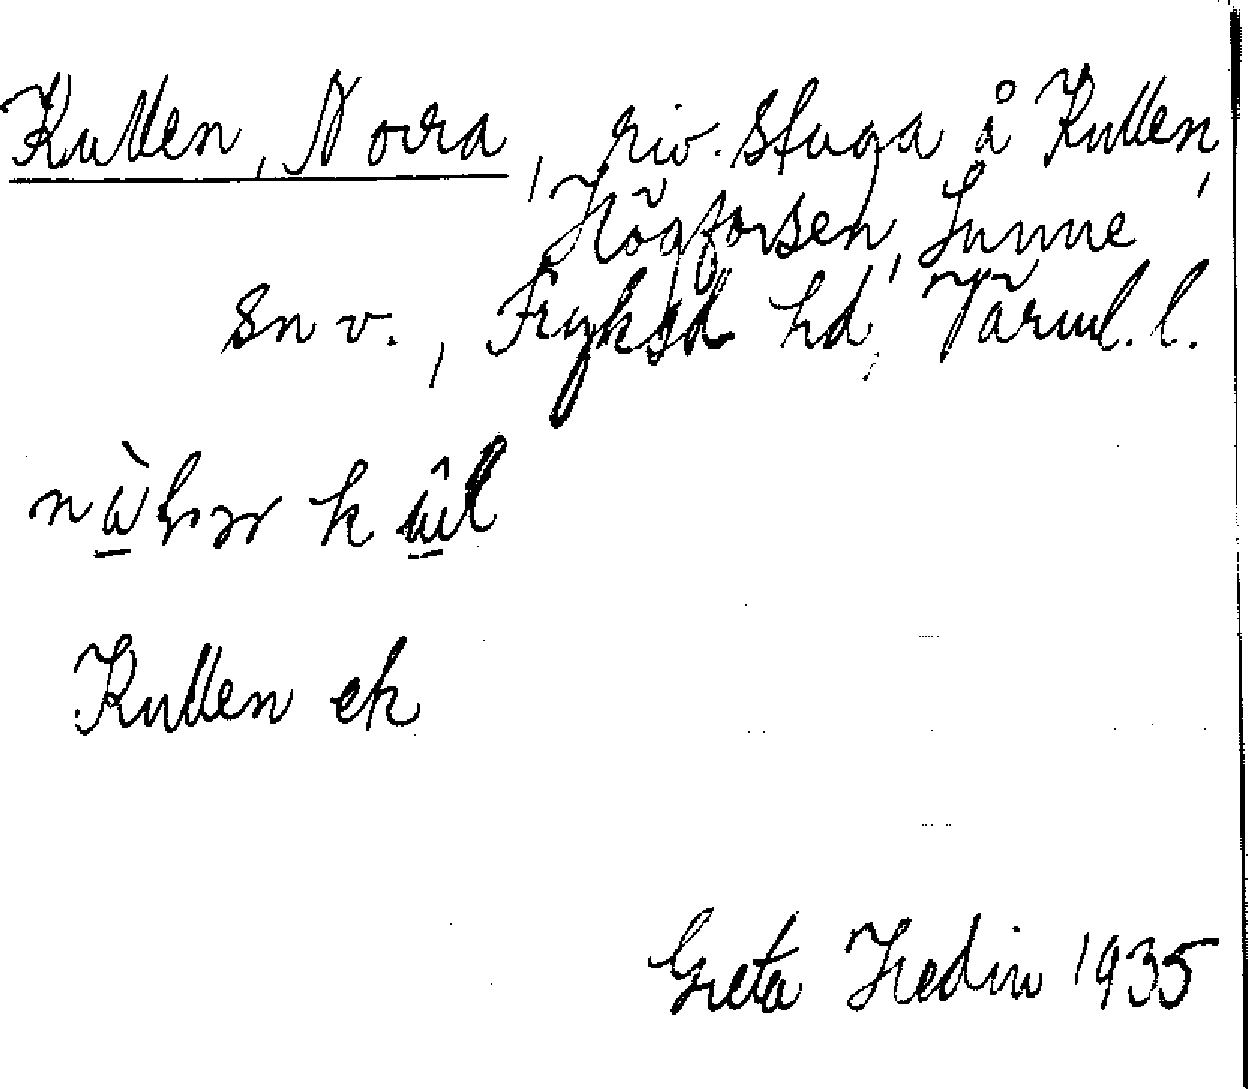 Kullen, Norra, riv. stuga å Kullen,
Högforsen, Sunne
sn v., Fryksd hd, Värml. l.
Kullen ek
Greta Hedin 1935